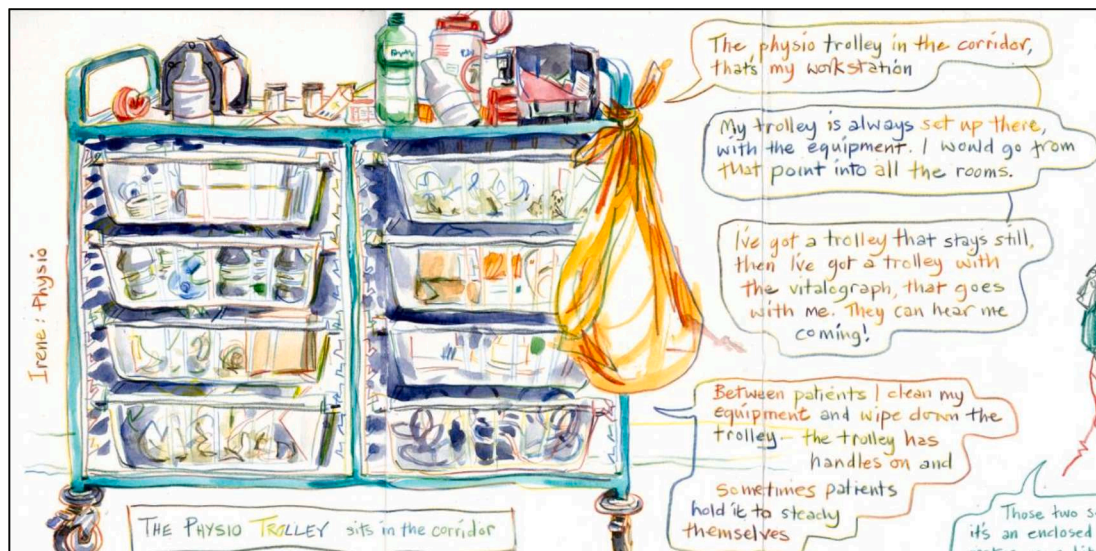 Irene: Physio
The physio trolley in the corridor,
that's my workstation
My trolley is always set up there,
with the equipment. I would go from
that point into all the rooms.
I've got a trolley that stays still,
then I've got a trolley with
the vitalograph, that goes
with me. They can hear me
coming!
Between patients I clean my
equipment and wipe down the
trolley - the trolley has
handles on and
sometimes patients
hold it to steady
themselves
THE PHYSIO TROLLEY sits in the corridor
Those two
it's an enclosed